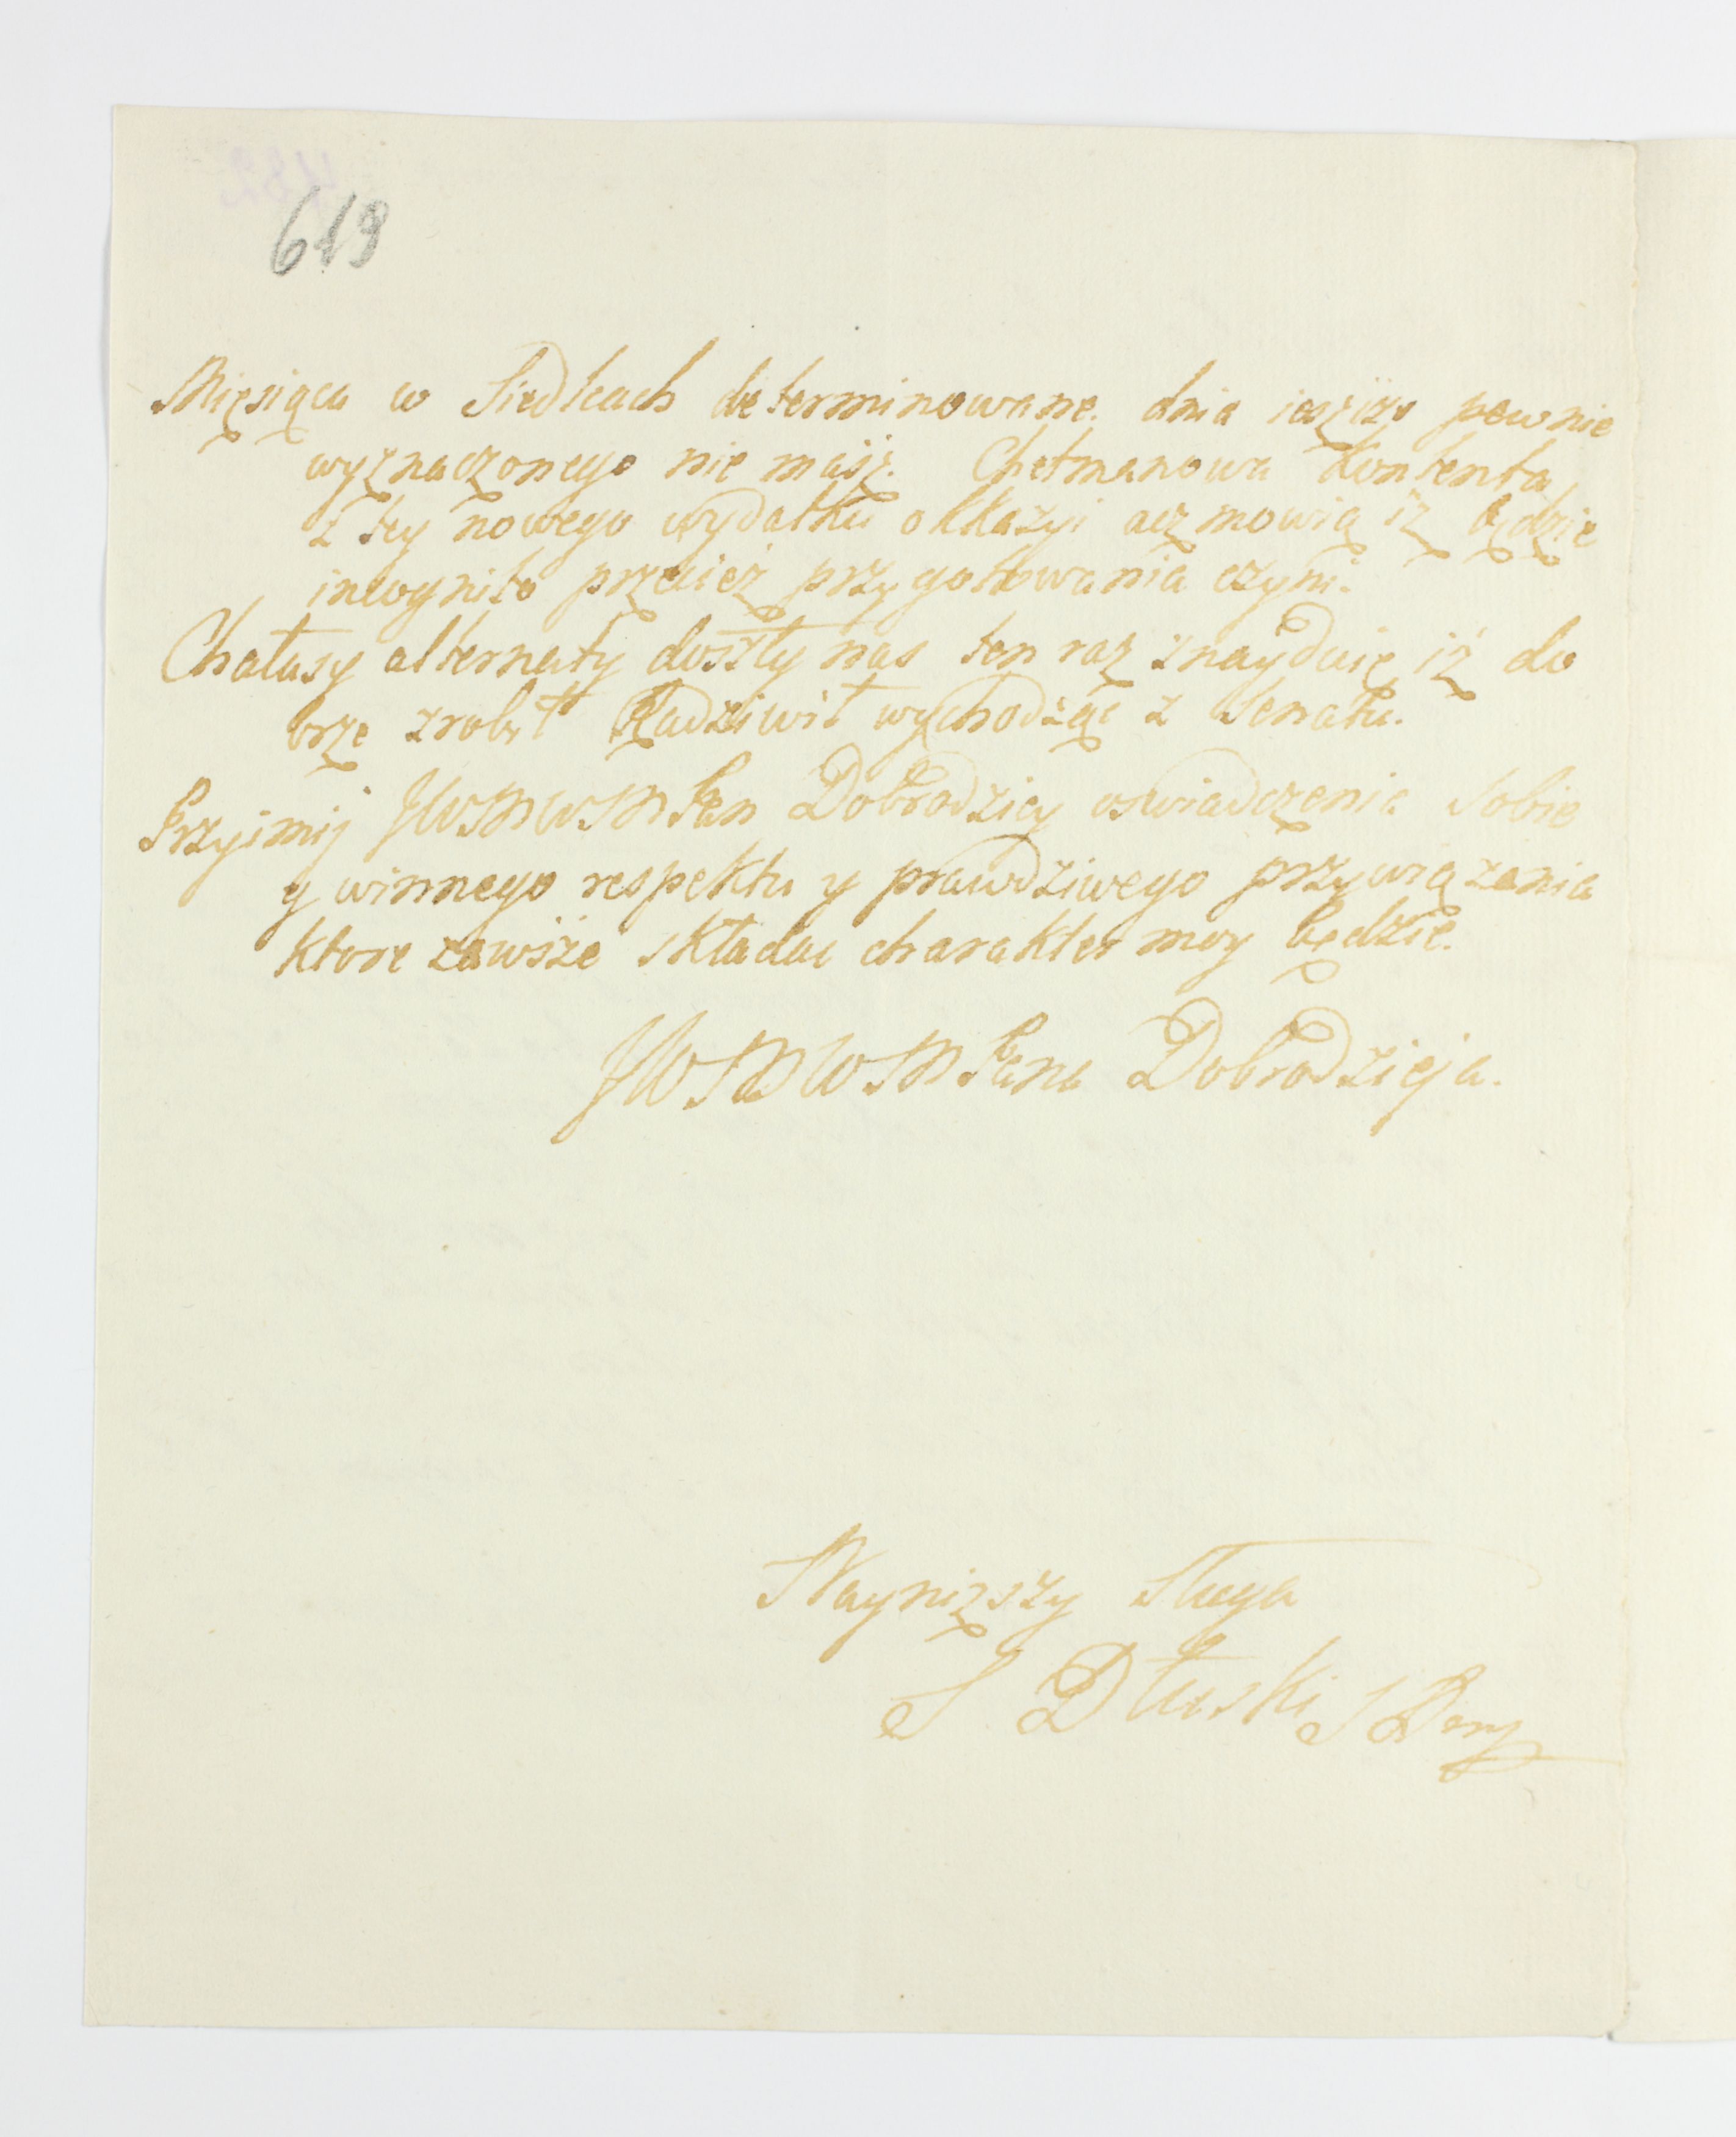 619
Mięsiąca w Siedlcach determinowane. dnia ieszcze pewnie
wyznaczonego nie masz. Chetmanowa kontenta
z tey nowego wydatku okkazyi acz mowią iż będzie
incognito przecież przygottowania czyni.
Chałasy alternaty doszły nas ten raz znayduię iż do
brze zrobił Radziwił wychodząc z Senatu.
Przyimij JWWMPan Dobrodziey oswiadczenia Sobie
y winnego respektu y prawdziwego przywiązania
ktore zawsze składac charakter moy będzie.
JWWMPana Dobrodzieja.
Nayniższy Sługa
S Dłuski